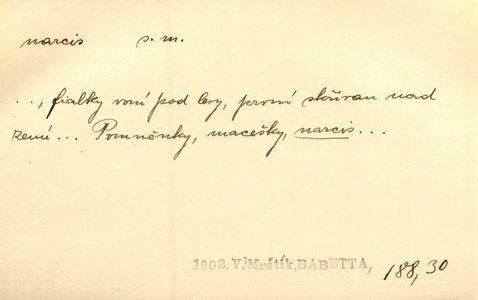 narcis s. m.
..., fialky voní pod kry, první skřivan nad
zemí... Pomněnky, macešky, narcis...
1902, V. Mrštík, BABETTA, 188, 30